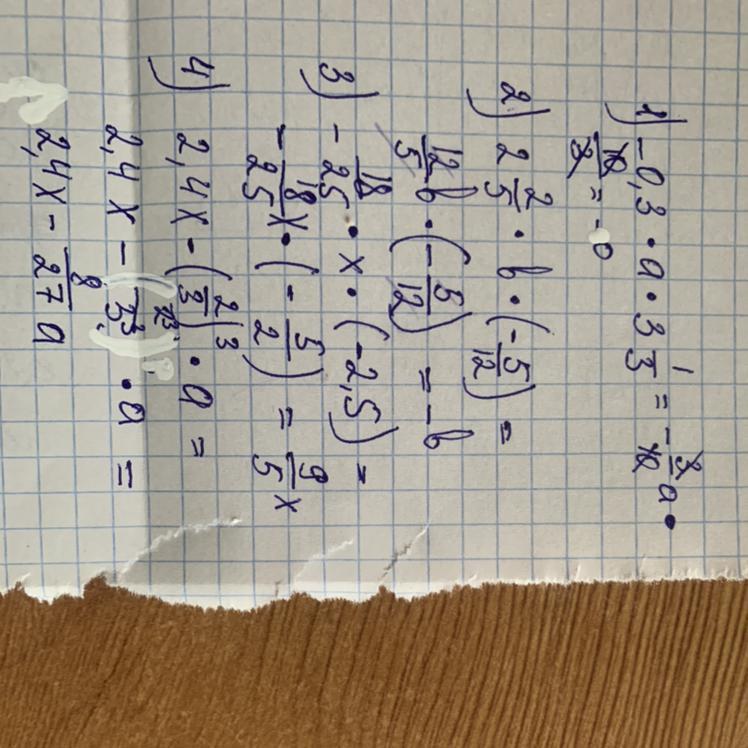 1) -0,3 · a · 3 1/3 = - 3/10 a ·
10/3 = - a
2) 2 2/5 · b · (- 5/12) =
12/5 b · (- 5/12) = - b
3) - 18/25 · x · (-2,5) =
- 18/25 x · (- 5/2) = 9/5 x
4) 2,4x - (2/3)^3 · a =
2,4x - (2^3/3^3) · a =
2,4x - 8/27 a